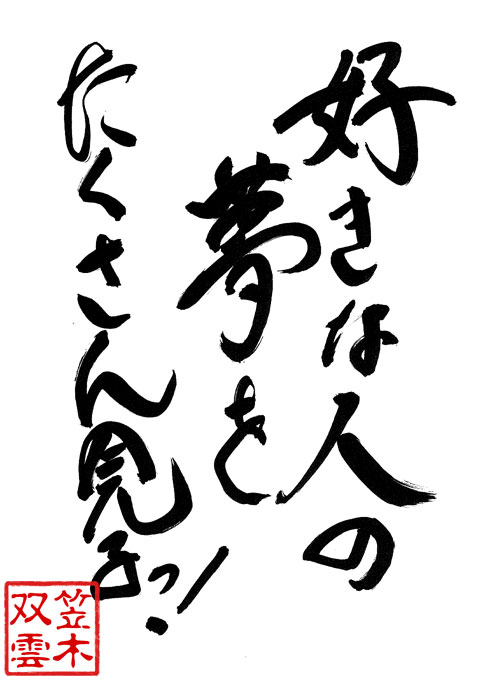 好きな人の
夢を
たくさん見子ッ!
笠木
双雲